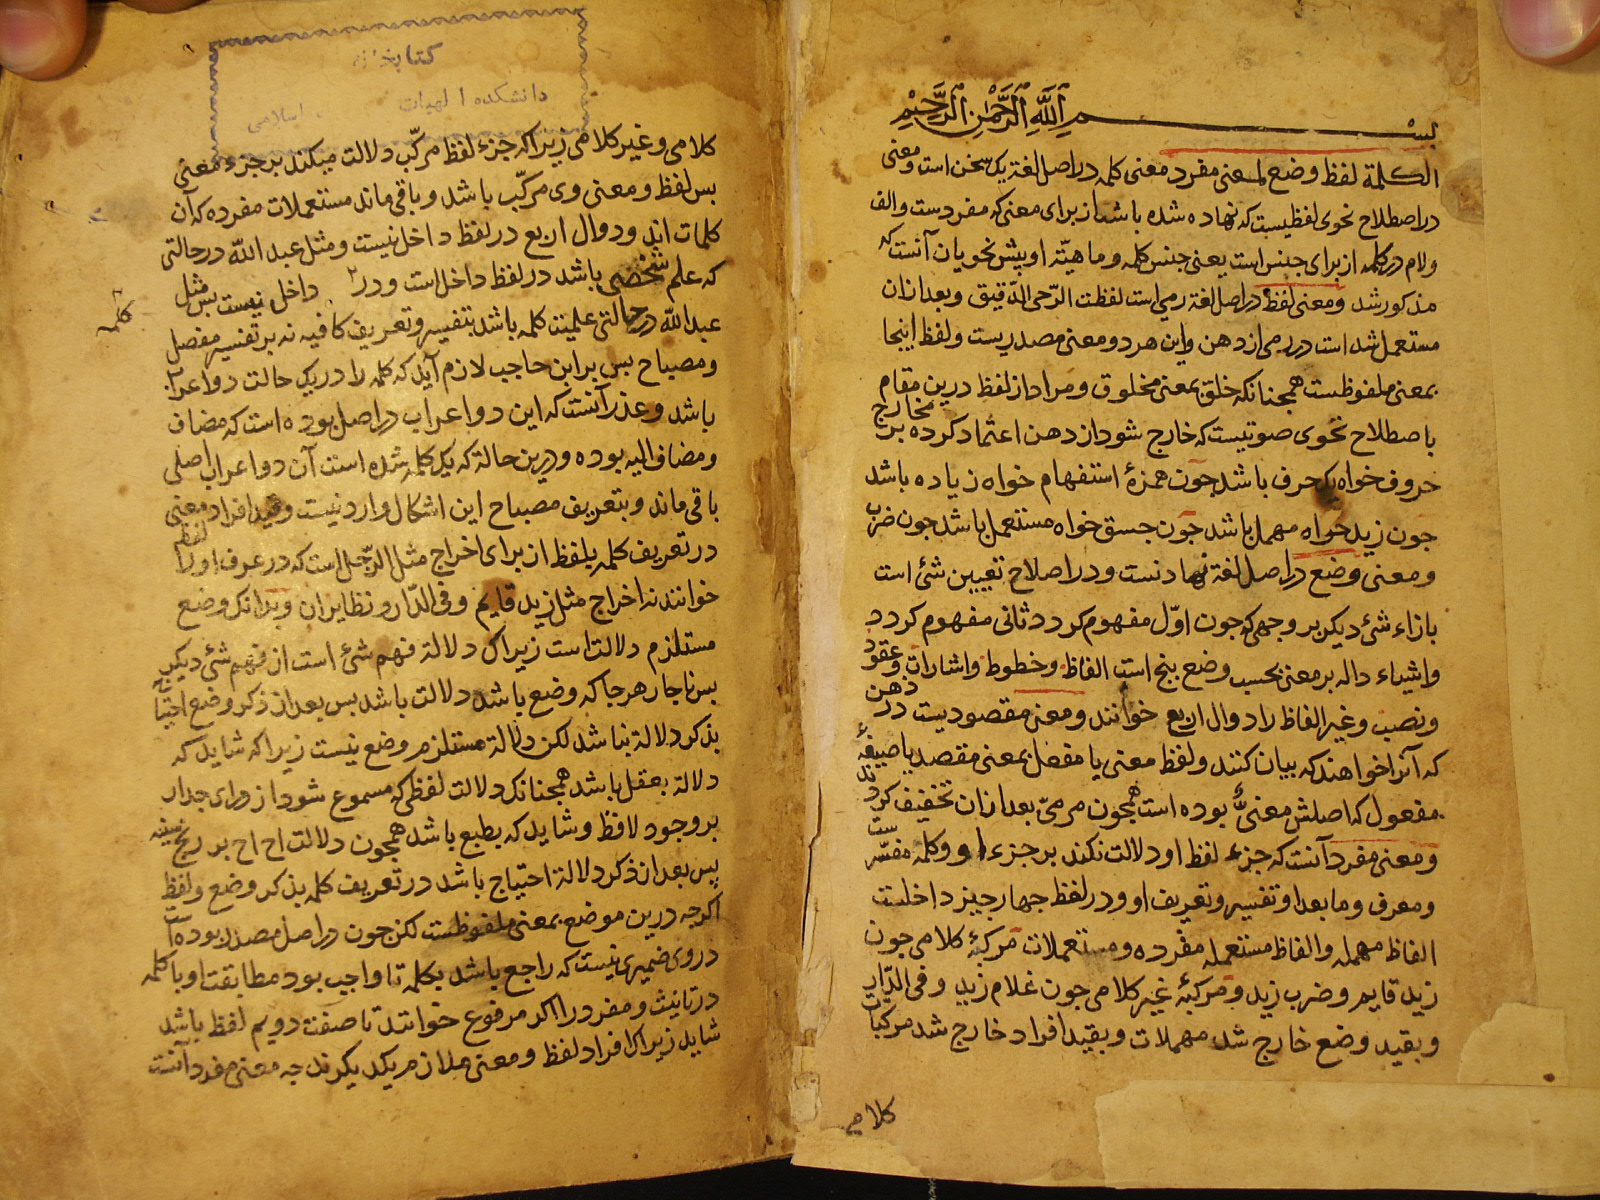 بسم الله الرحمن الرحيم
الكلمة لفظ وضع لمعنى مفرد معنى كلمه در اصل لغة يك سخن است و معنى
در اصطلاح نحوى لفظيست كه نهاده شده باشد از براى معنى كه مفردست و الف
و لام در كلمه از براى جنس است يعنى جنس كلمه و ماهيّة او پيش نحويان آنست كه
مذكور شد و معنى لفظ در اصل لغة رمى است لفظت الرّحى الدّقيق و بعد از ان
مستعمل شد است در رمى از دهن و اين هر دو معنى مصدريست و لفظ اينجا
بمعنى ملفوظست همجنانكه خلق بمعنى مخلوق و مراد از لفظ درين مقام
باصطلاح نحوى صوتيست كه خارج شود از دهن اعتماد كرده بر مخارج
حروف خواه يك حرف باشد جون همزهٔ استفهام خواه زياده باشد
جون زيد خواه مهمل باشد جون جسق خواه مستعمل باشد جون ضرب
و معنى وضع در اصل لغة نهادنست و در اصلاح تعيين شئ است
بازاء شئ ديكر بر وجهى كه جون اوّل مفهوم كردد ثانى مفهوم كردد
و اشياء داله بر معنى بحسب وضع پنج است الفاظ و خطوط و اشارات و عقود
و نصب و غير الفاظ را دوال اربع خوانند و معنى مقصوديست در ذهن
كه آنرا خواهند كه بيان كنند و لفظ معنى يا مفعل بمعنى مقصد يا صيغهٔ
مفعول كه اصلش معنىٌّ بوده است همجون مرمىّ بعد از ان تخفيف كردند
و معنى مفرد آنست كه جزء لفظ او دلالت نكند بر جزء او و كلمه مفسّر ست
و معرف و ما بعد او تفسير و تعريف او و در لفظ جهار جيز داخلست
الفاظ مهمله و الفاظ مستعمله مفرده و مستعملات مركبهٔ كلامى جون
زيد قايم و ضرب زيد و مركبهٔ غير كلامى جون غلام زيد و فى الدّار
و بقيد وضع خارج شد مهملات و بقيد افراد خارج شد مركبات
كلامى
كتابخانه
دانشكده الهيات
اسلامى
كلامى و غير كلامى زيرا كه جزء لفظ مركّب دلالت ميكند بر جزء معنى
بس لفظ و معنى وى مركّب باشد و باقى ماند مستعملات مفرده كه آن
كلمات اند و دوال اربع در لفظ داخل نيست و مثل عبد الله در حالتى
كه علم شخصى باشد در لفظ داخل است و در داخل نيست بس مثل
كلمه
عبد الله در حالتى علميت كلمه باشد بتفسير و تعريف كافيه نه بر تفسير مفصل
و مصباح بس بر ابن حاجب لازم آيد كه كلمه را در يك حالت دو اعراب
باشد و عذر آنست كه اين دو اعراب در اصل بوده است كه مضاف
و مضاف اليه بوده و درين حالة كه يك كلمه شده است آن دو اعراب اصلى
باقى ماند و بتعريف مصباح اين اشكال وارد نيست و قيد افراد معنى
در تعريف كلمه بلفظ از براى اخراج مثل الرّجل است كه در عرف او را لفظ
خوانند نه اخراج مثل زيد قايم و فى الدّار و نظاير ان و بدانك وضع
مستلزم دلالت است زيراك دلالة فهم شئ است از فهم شئ ديكر
بس ناجار هر جا كه وضع باشد دلالت باشد بس بعد از ذكر وضع احتياج
بذكر دلالة نباشد لكن دلالة مستلزم وضع نيست زيرا كه شايد كه
دلالة بعقل باشد همجنانك دلالت لفظى كه مسموع شود از وراى جدار
بر وجود لافظ و شايد كه بطبع باشد همجون دلالت اح اح بر رنج سينه
پس بعد از ذكر دلالة احتياج باشد در تعريف كلمه بذكر وضع و لفظ
اكرجه درين موضع بمعنى ملفوظست لكن جون در اصل مصدر بوده است
در وى ضميرى نيست كه راجع باشد بكلمه تا واجب بود مطابقت او با كلمه
در تانيث و مفرد را اكر مرفوع خوانند تا صفت دويم لفظ باشد
شايد زيراك افراد لفظ و معنى ملازم يكديكرند جه معنى مفرد آنست